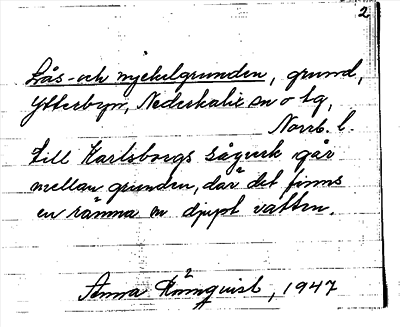 2
Lås- och nyckelgrunden, grund,
Ytterbyn, Nederkalix sn o tg,
Norrb. l.
till Karlsborgs sågverk går
mellan grunden, där det finns
en ränna m djupt vatten.
Anna 1947